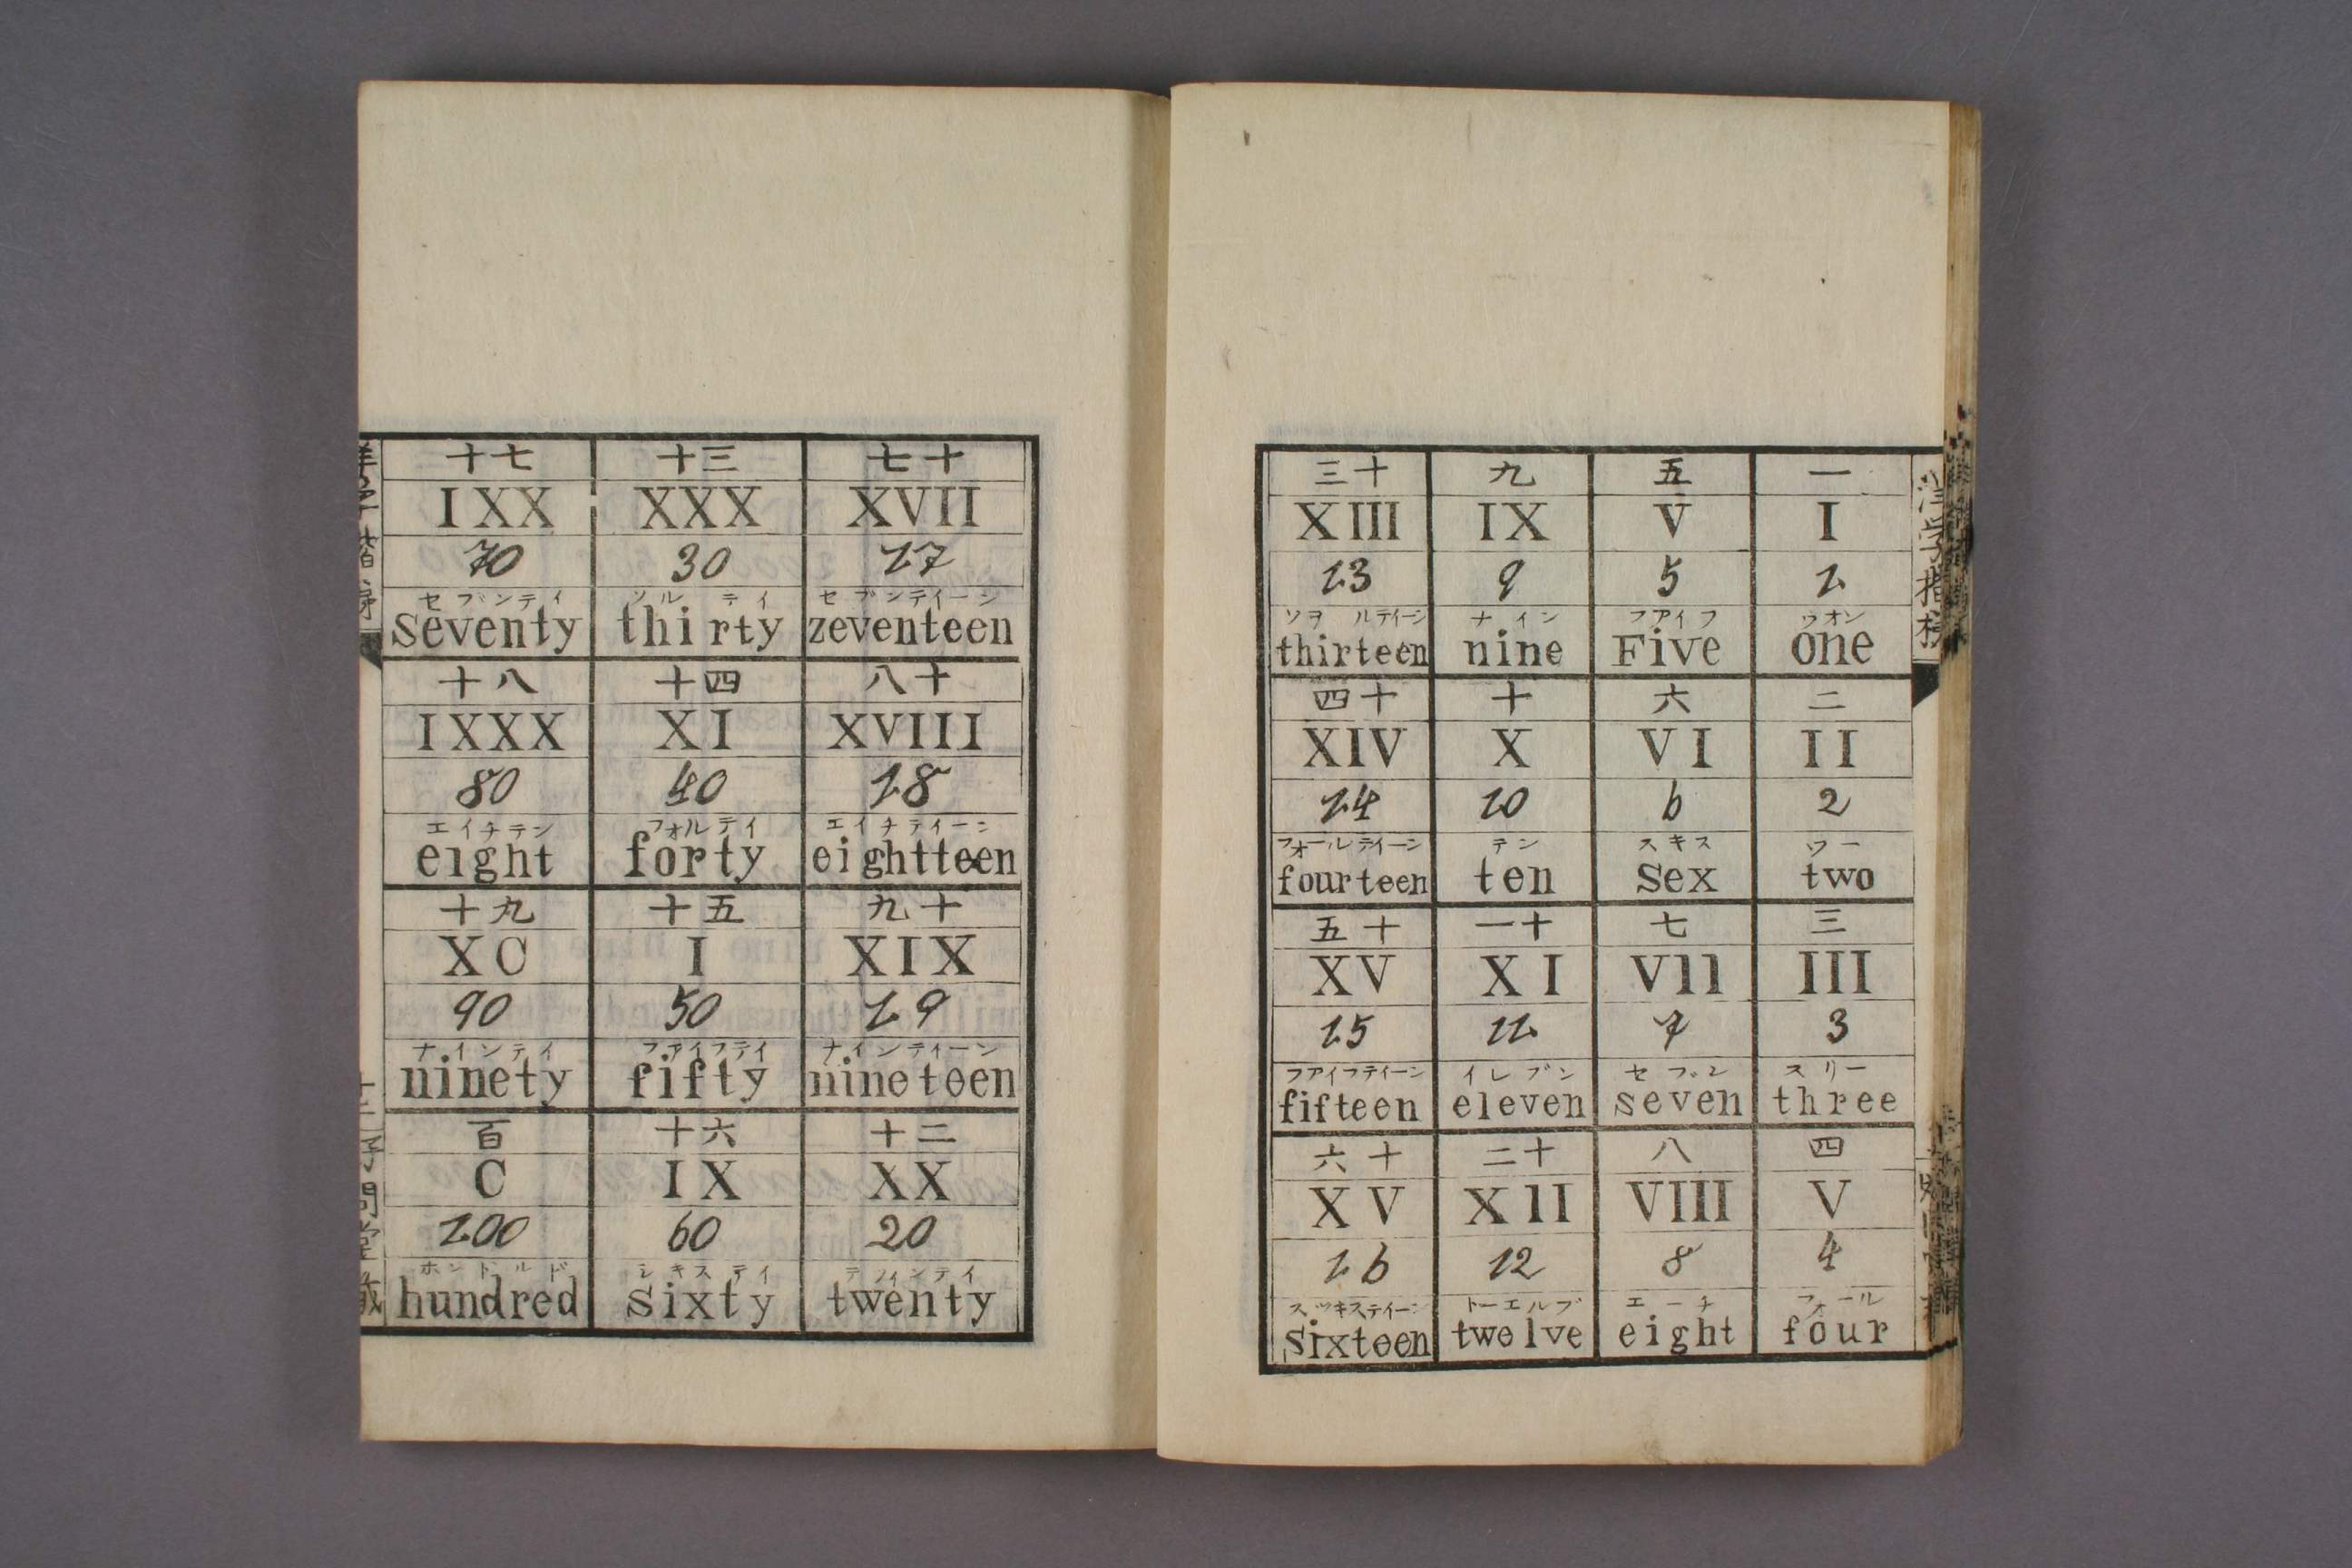 一
I
1
ウオン
one
二
II
2
ツー
two
三
III
3
スリー
three
四
V
4
フォール
four
五
V
5
フアイフ
Five
六
VI
6
スキス
Sex
七
Vll
7
セブン
seven
八
VIII
8
エーチ
eight
九
IX
9
ナイン
nine
十
X
10
テン
ten
一十
XI
11
イレブン
eleven
二十
XlI
12
トーエルブ
twelve
三十
XIII
13
ソヲルテイーン
thirteen
四十
XIV
14
フォールテイーン
fourteen
五十
XV
15
フアイフテイーン
fifteen
六十
XV
16
スツキステイーン
Sixteen
七十
XVII
17
セブンテイーン
zeventeen
八十
XVIII
18
エイチテイーン
eightteen
九十
XIX
19
ナインテイーン
nineteen
十二
XX
20
twenty
十三
XXX
30
ソルテイ
thirty
十四
XI
40
フォルテイ
forty
十五
I
50
フアイフテイ
fifty
十六
IX
60
シキステイ
Sixty
十七
IXX
70
セブンテイ
Seventy
十八
IXXX
80
エイチテン
eight
十九
XC
90
ナインテイ
ninety
百
C
100
ホントルド
hundred